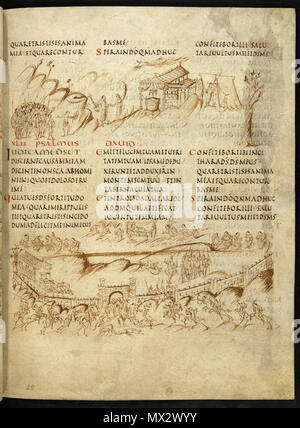 QUARETRISTISESANIMA
MEAETQUARECONTUR
BASME
SPERAINDOQMADHUC
CONFITEBORILLISALU
TAREUULTUSMEIETDSMS
XLII PSALMUS DAUID
IUDICAMEDSET
DISCERNECAUSAMMEAM
DEGENTENONSCAABHOMI
NEINIQUOETDOLOSOERU
EME
QUIATUESDSFORTITUDO
MEAQUAREMEREPPULIS
TIETQUARETRISTISINCEDO
DUMADFLIGITMEINIMICUS
EMITTELUCEMTUAMETUERI
TATEMTUAMIPSAMEDEDU
XERUNTETADDUXERUN
INMONTEMSCMTUUMETIN
TABERNACULATUA
ETINTROIBOADALTAREDI
ADDMQUILAETIFICAT
IUUENTUTEMMEAM
CONFITEBORTIBIIN
CITHARADSDSMEUS
QUARETRISTISESANIMA
MEAETQUARECONTUR
BASME
SPERAINDOQMADHUC
CONFITEBORILLISALU
TAREUULTUSMEIETDSMS